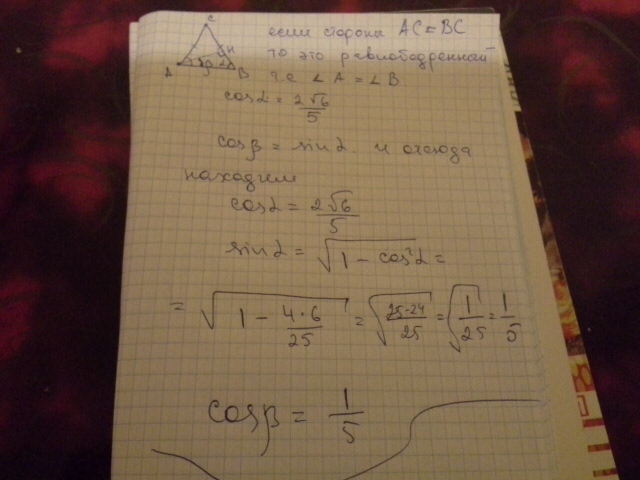 C
H
A
β
α
B
если сторона AC = BC
то это равнобедренный
т.е ∠A = ∠B
cosα = 2√6/5
cosβ = sinα и отсюда
находим
cosα = 2√6/5
sinα = √(1 - cos²α) =
= √(1 - 4·6/25) = √(25-24/25) = √(1/25) = 1/5
cosβ = 1/5